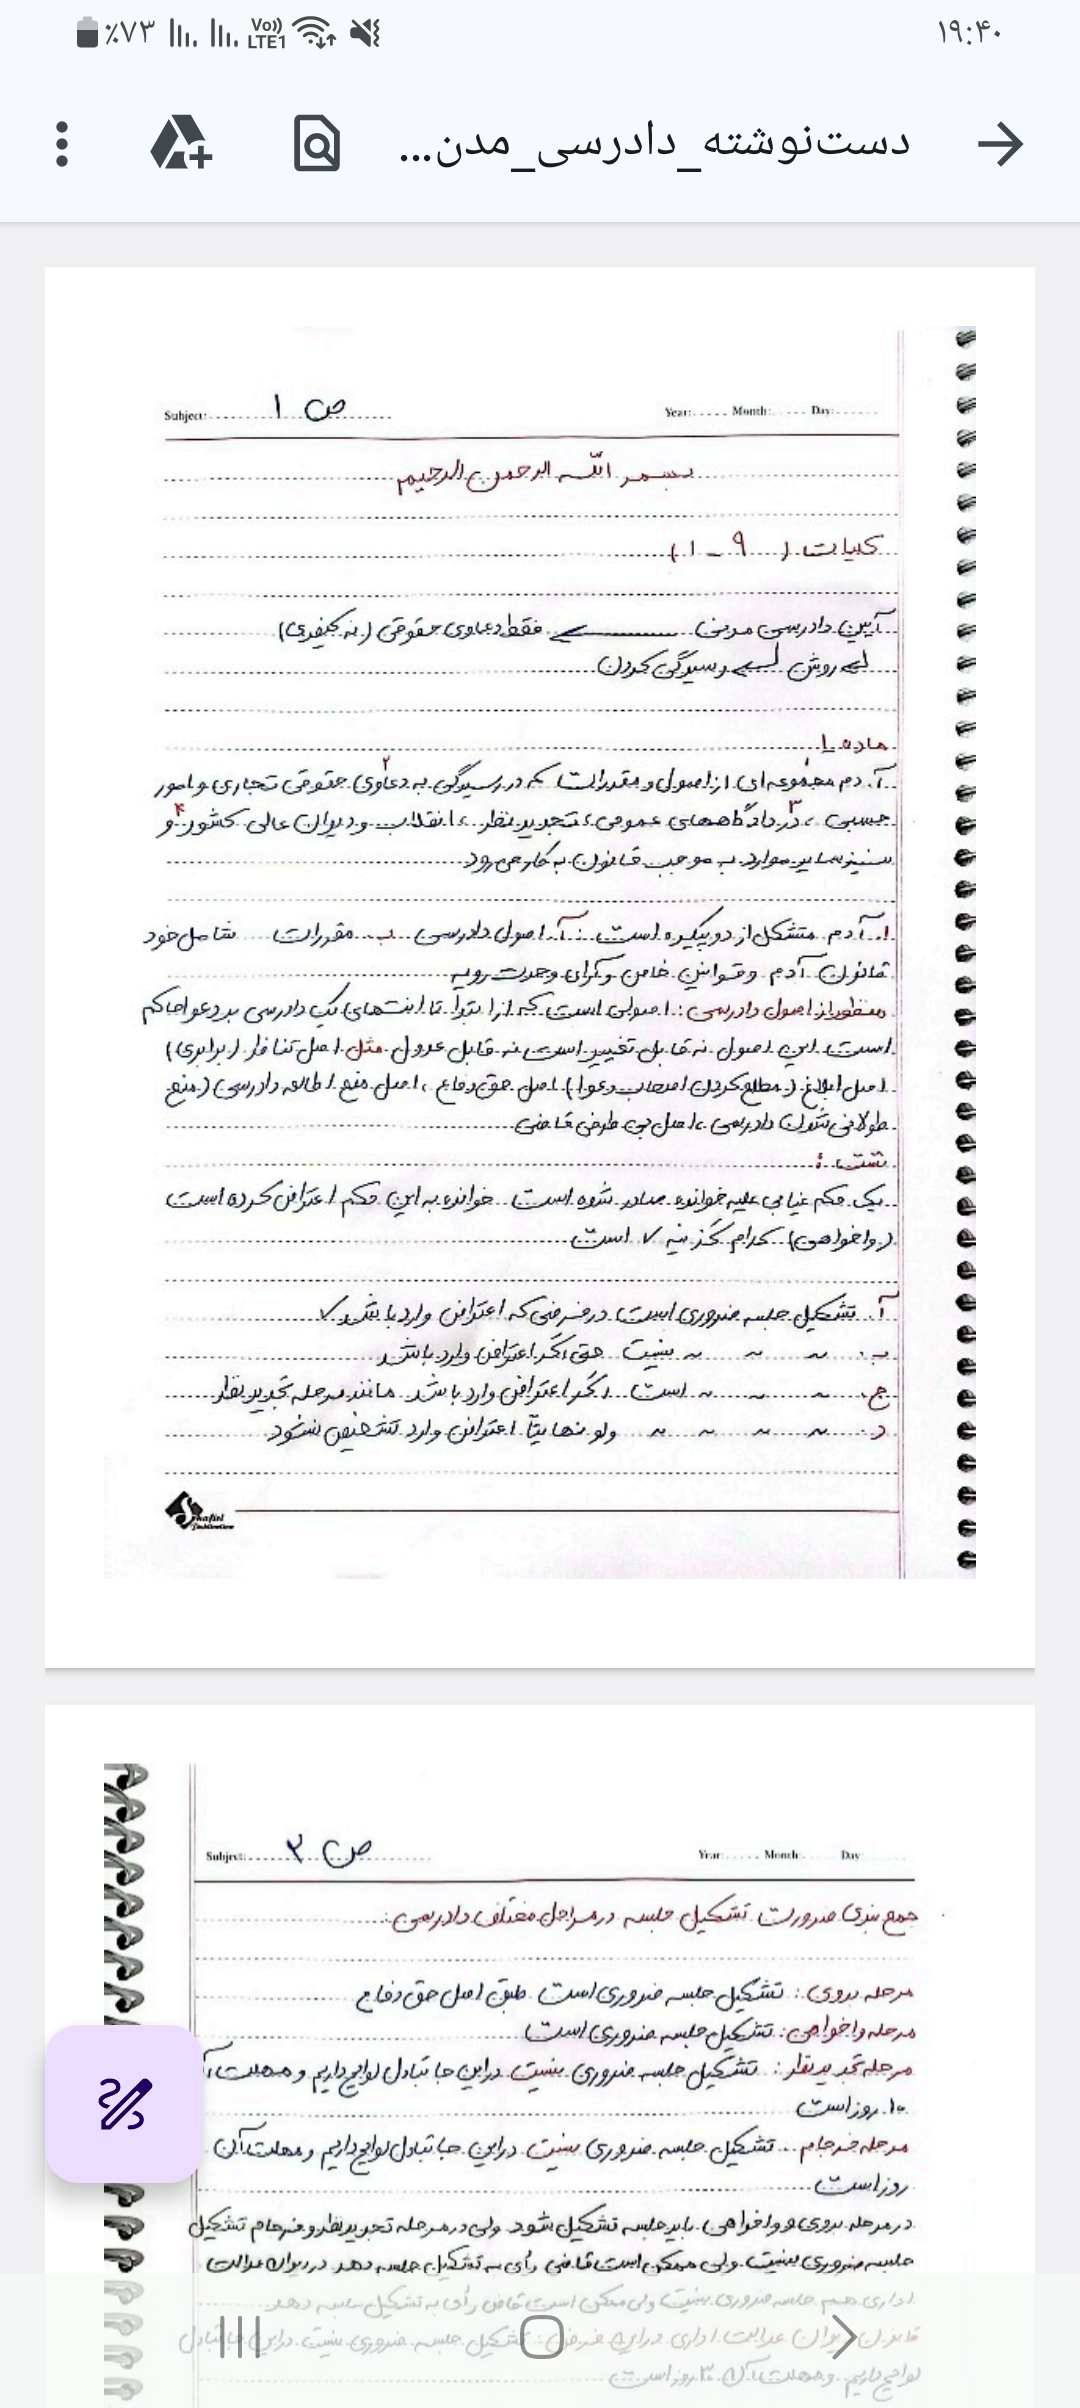 ۱۹:۴۰
٪۷۳
Vo)) LTE1
دست‌نوشته_دادرسی_مدن...
Subject: ص ۱
Year: Month: Day:
بسم الله الرحمن الرحیم
کلیات (۹ - ۱)
آیین دادرسی مدنی فقط دعاوی حقوقی (نه کیفری)
روش رسیدگی کردن
ماده ۱
آ.د.م مجموعه‌ای از اصول و مقررات که در رسیدگی به دعاوی حقوقی تجاری و امور
۲
حسبی، در دادگاههای عمومی، تجدید نظر، انقلاب و دیوان عالی کشور و
۳ ۴
سایر موارد به موجب قانون به کار می‌رود
۱. آ د م متشکل از دو پیکره است: آ. اصول دادرسی ب. مقررات شامل خود
قانون آ د م و قوانین خاص و آرای وحدت رویه
منظور از اصول دادرسی: اصولی است که از ابتدا تا انتهای یک دادرسی بر دعوا حاکم
است این اصول نه قابل تغییر است نه قابل عدول مثل اصل تناظر (برابری)
اصل ابلاغ (مطلع کردن اصحاب دعوا) اصل حق دفاع، اصل منع اطاله دادرسی (منع
طولانی شدن دادرسی، اصل بی طرفی قاضی
تست:
یک حکم غیابی علیه خوانده صادر شده است خوانده به این حکم اعتراض کرده است
(واخواهی) کدام گزینه ✓ است
آ. تشکیل جلسه ضروری است در فرضی که اعتراض وارد باشد ✓
ب. ~ ~ ~ نیست حتی اگر اعتراض وارد باشد
ج. ~ ~ ~ است اگر اعتراض وارد باشد مانند مرحله تجدید نظر
د. ~ ~ ~ ~ ولو نهایتاً اعتراض وارد تشخیص نشود
Shafiei
Publication
Subject: ص ۲
Year: Month: Day
جمع بندی ضرورت تشکیل جلسه در مراحل مختلف دادرسی:
مرحله بدوی: تشکیل جلسه ضروری است طبق اصل حق دفاع
مرحله واخواهی: تشکیل جلسه ضروری است
مرحله تجدید نظر: تشکیل جلسه ضروری نیست در این جا تبادل لوایح داریم و مهلت آ
۱۰ روز است
مرحله فرجام تشکیل جلسه ضروری نیست در این جا تبادل لوایح داریم و مهلت آن
روز است
در مرحله بدوی و واخواهی باید جلسه تشکیل شود ولی در مرحله تجدید نظر و فرجام تشکیل
جلسه ضروری نیست ولی ممکن است قاضی رأی به تشکیل جلسه دهد در دیوان عدالت
اداری هم جلسه ضروری نیست ولی ممکن است قاضی رأی به تشکیل جلسه دهد
قانون دیوان عدالت اداری در این تشکیل جلسه ضروری نیست در این جا تبادل
لوایح داریم و مهلت آن روز است